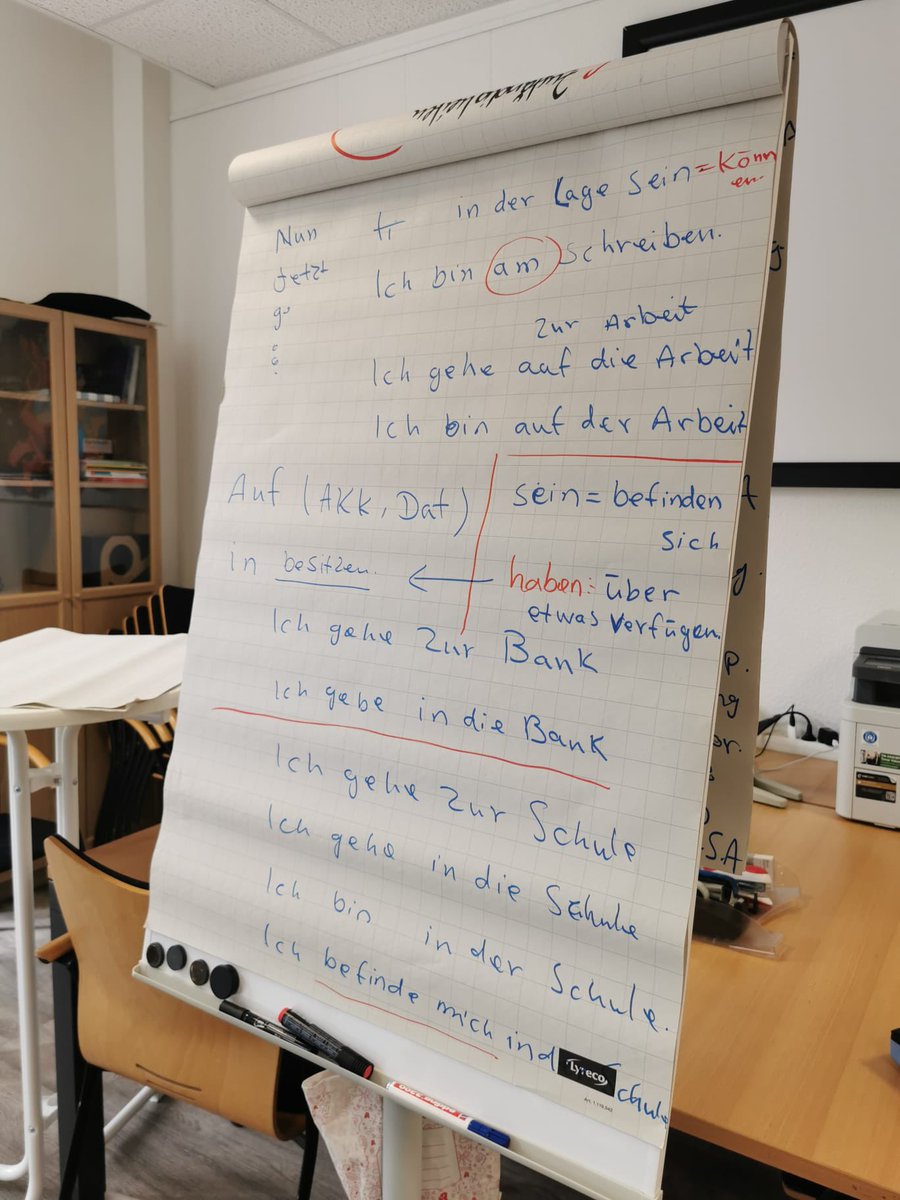 Zuständigkeiten
in der Lage sein = könn
en
Nun
Ich bin am schreiben.
Jetzt
zur Arbeit
Ich gehe auf die Arbeit
Ich bin auf der Arbeit
Auf (AKK, Dat)
sein = befinden
sich
in besitzen.
haben: über
etwas verfügen.
Ich gehe zur Bank
Ich gehe in die Bank
Ich gehe zur Schule
Ich gehe in die Schule
Ich bin in der Schule.
Ich befinde mich in d chule
Lyreco